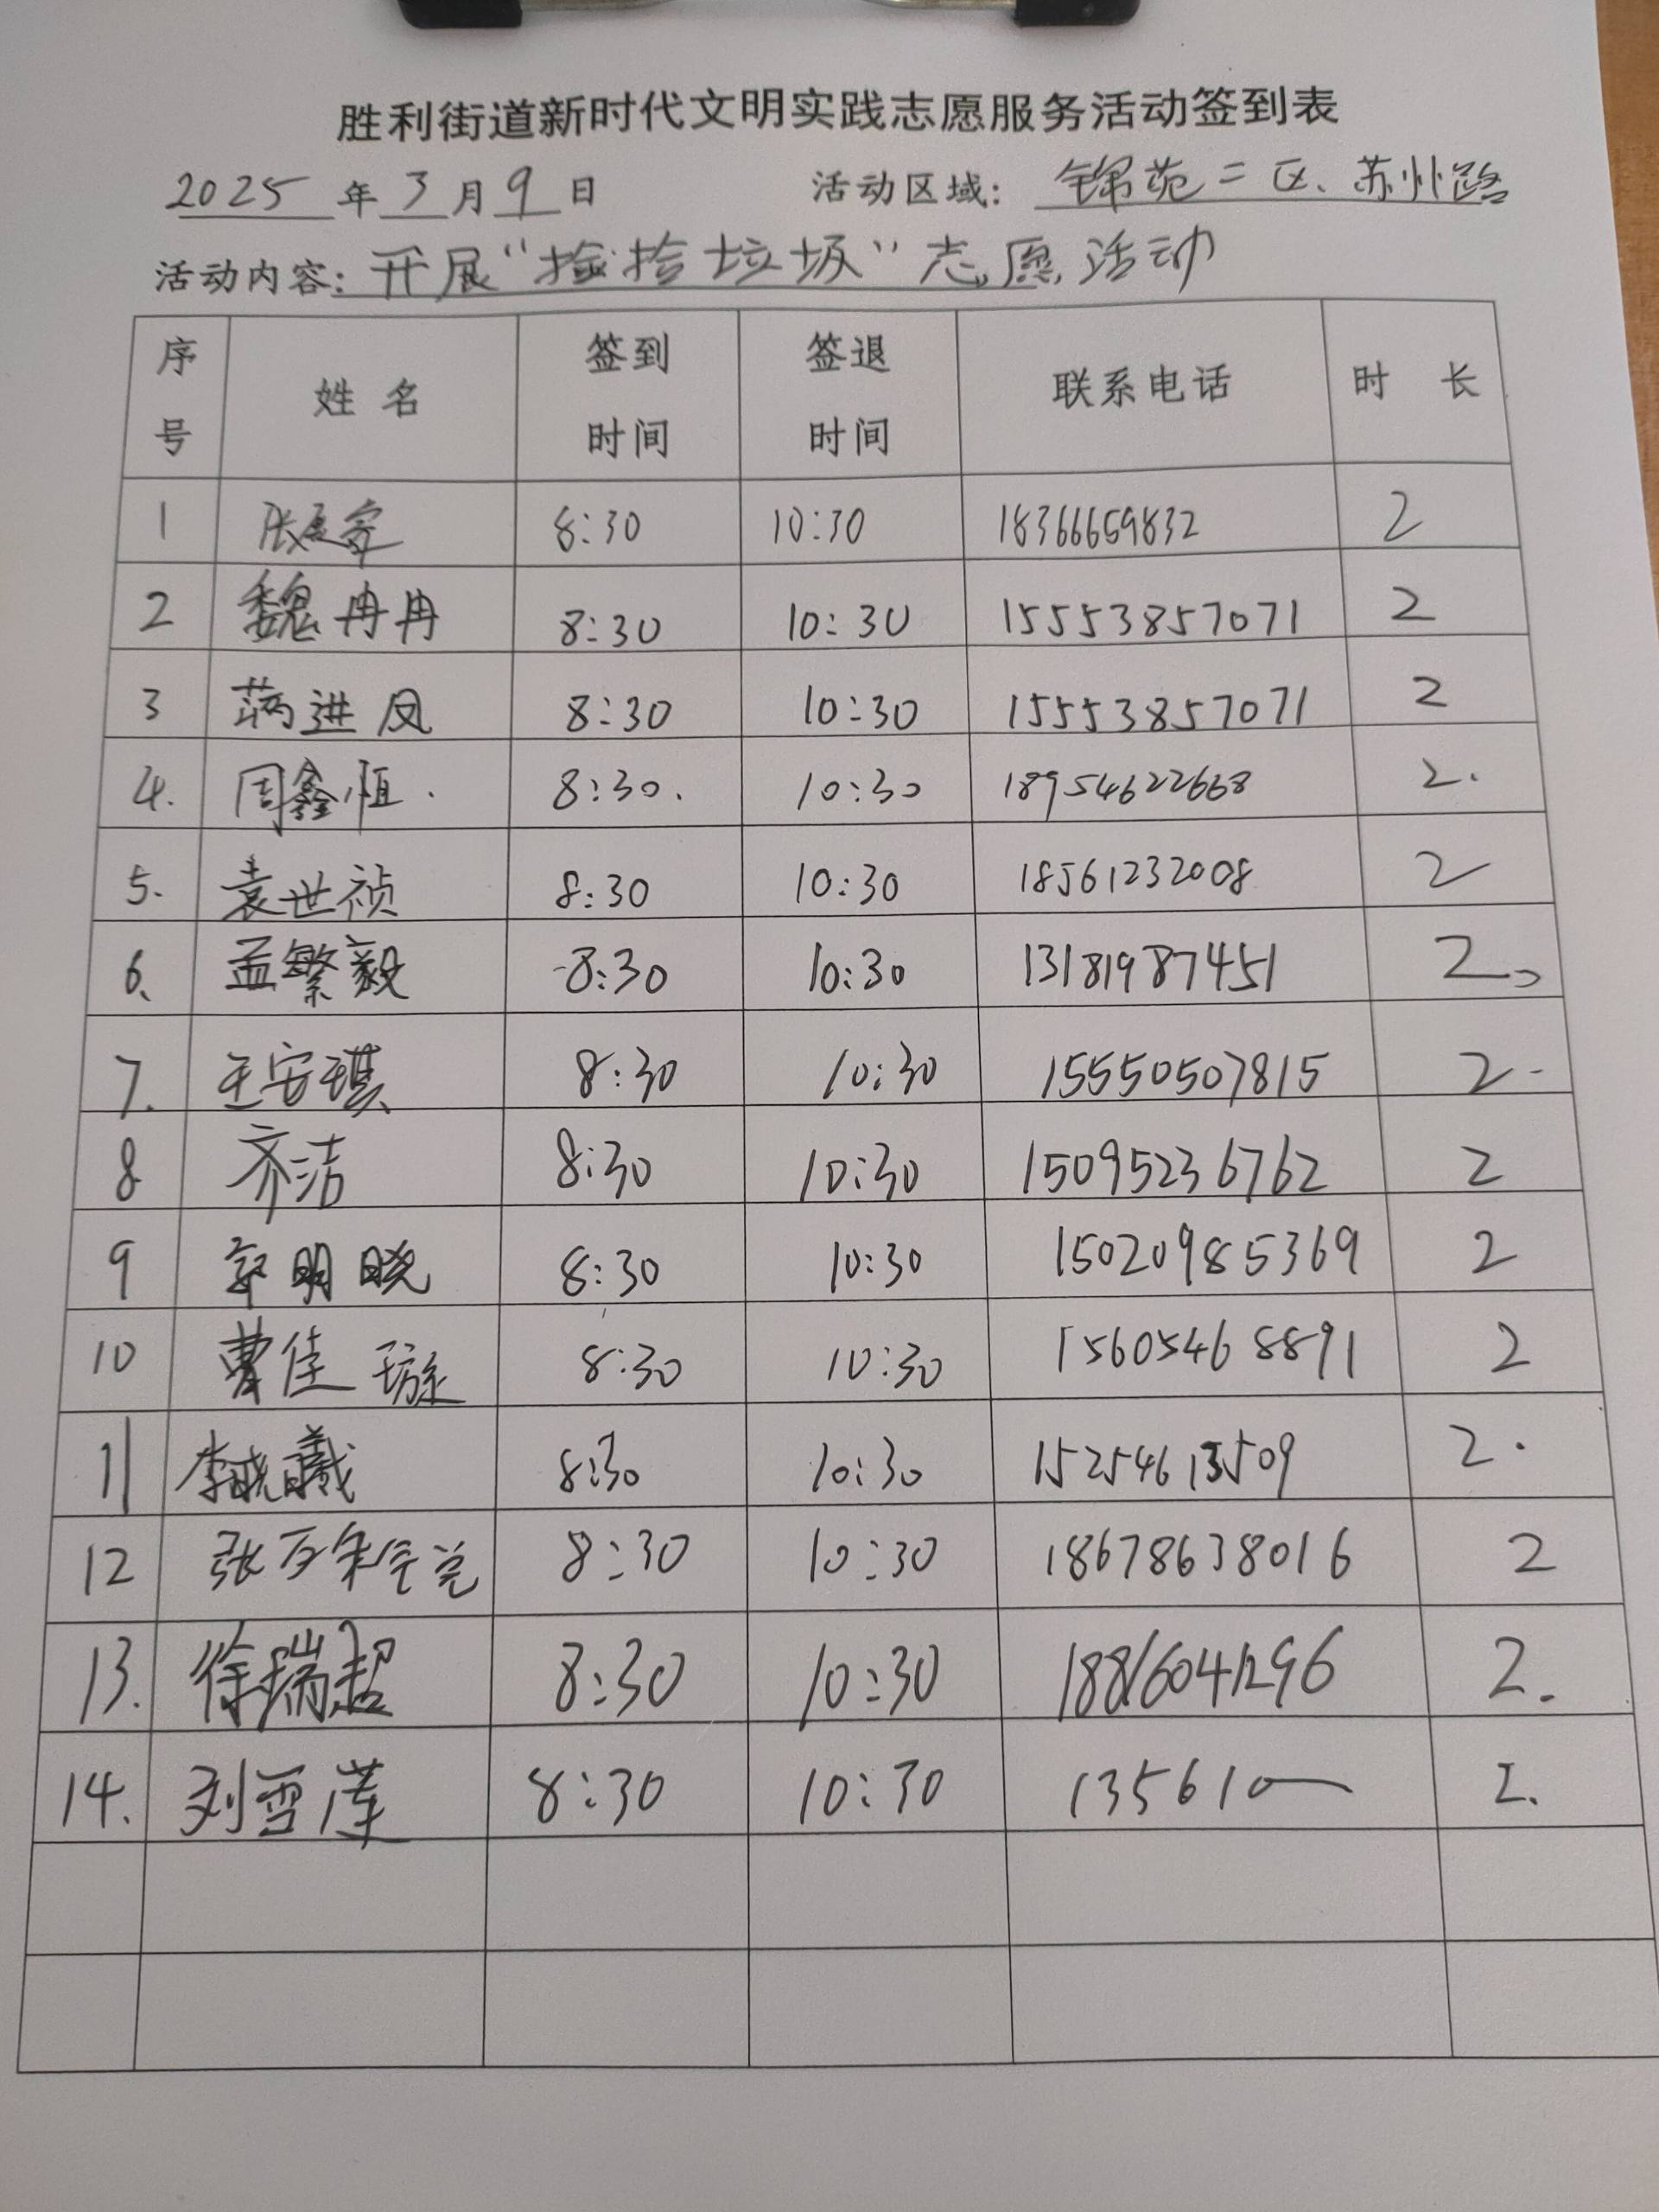 胜利街道新时代文明实践志愿服务活动签到表
2025年3月9日 活动区域：锦苑二区、苏州路
活动内容：开展“捡拾垃圾”志愿活动
序号 姓名 签到时间 签退时间 联系电话 时长
1 张 8:30 10:30 18366659832 2
2 魏冉冉 8:30 10:30 15553857071 2
3 蒋进凤 8:30 10:30 15553857071 2
4. 周鑫恒. 8:30. 10:30 18954622668 2.
5. 袁世祯 8:30 10:30 18561232008 2
6、 孟繁毅 8:30 10:30 13181987451 2。
7. 王安琪 8:30 10:30 15550507815 2.
8 齐洁 8:30 10:30 15095236762 2
9 郭明晓 8:30 10:30 15020985369 2
10 曹佳璇 8:30 10:30 15605468891 2
11 李晓曦 8:30 10:30 15254613509 2.
12 张 8:30 10:30 18678638016 2
13. 徐瑞超 8:30 10:30 18816041296 2.
14. 刘雪莲 8:30 10:30 135610 2.